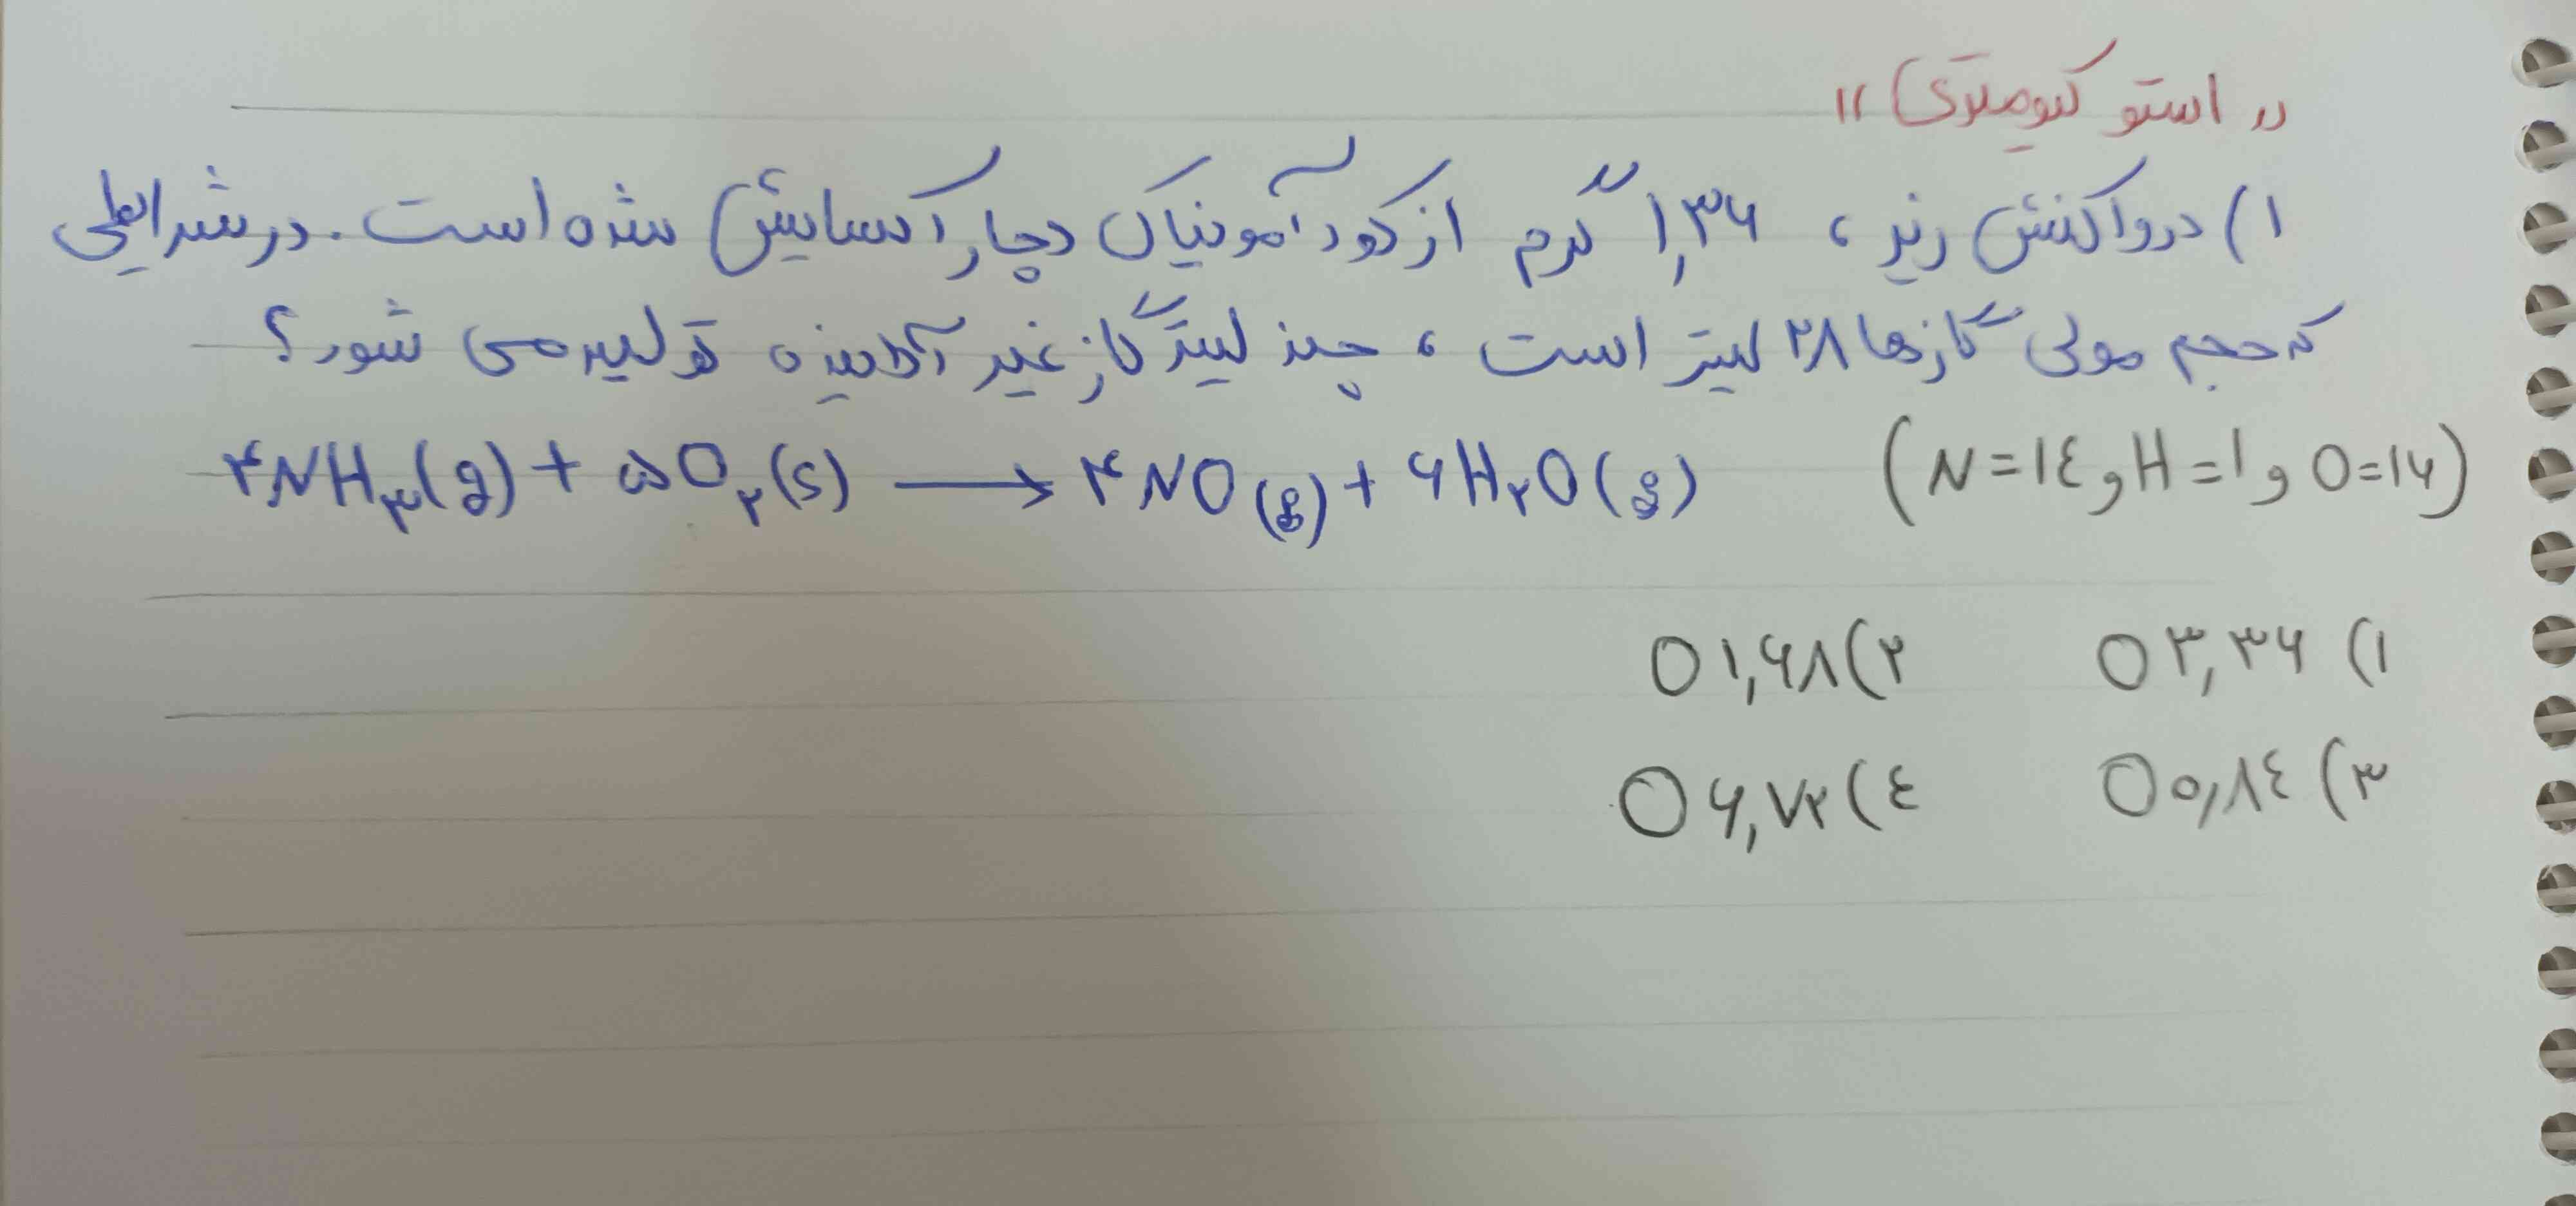 «استوکیومتری»
۱) در واکنش زیر، ۱,۳۶ گرم از کود آمونیاک دچار اکسایش شده است. در شرایطی
که حجم مولی گازها ۲۸ لیتر است، چند لیتر گاز غیر آلاینده تولید می شود؟
۴NH۳(g) + ۵O۲(s) → ۴NO(g) + ۶H۲O(g) (N=۱٤ و H=۱ و O=۱۶)
۱) ۳,۳۶ ۲) ۱,۶۸
۳) ۰,۸٤ ٤) ۶,۷۲